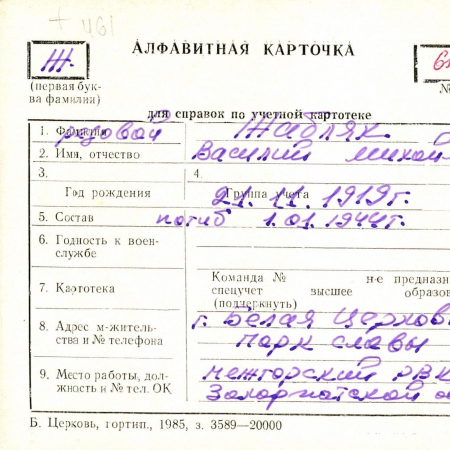 + 461
АЛФАВИТНАЯ КАРТОЧКА
Ж.
(первая бук-
ва фамилии)
№
для справок по учетной картотеке
1. Фамилия Жабляк
рядовой
2. Имя, отчество Василий Михай
3.
Год рождения
4.
Группа учета
21.11.1919г.
5. Состав погиб 1.01.1944г.
6. Годность к воен-
службе
7. Картотека
Команда № н-е предназн
спецучет высшее образов
(подчеркнуть)
8. Адрес м-житель-
ства и № телефона
г. Белая Церковь
парк славы
9. Место работы, дол-
жность и № тел. ОК
межгорский РВК
Закарпатской о
Б. Церковь, гортип., 1985, з. 3589—20000